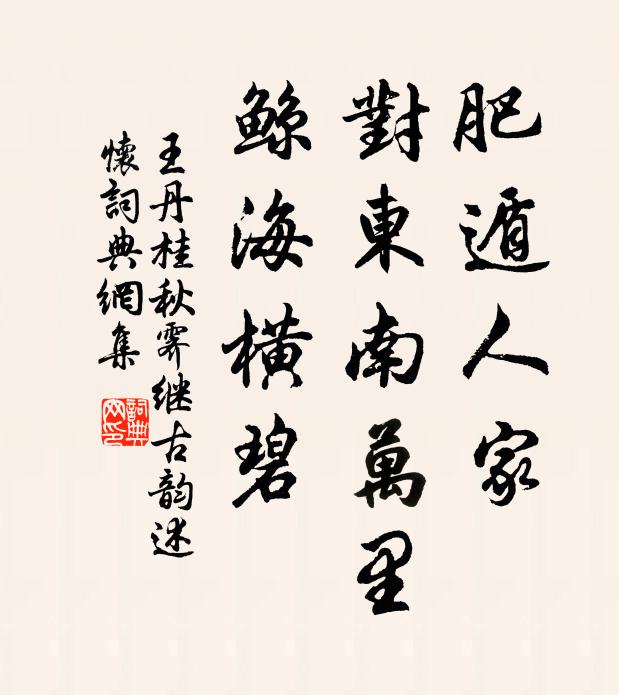 肥遁人家
對東南萬里
鯨海橫碧
王丹桂秋霽継古韵述
懷詞典網集
詞典網印